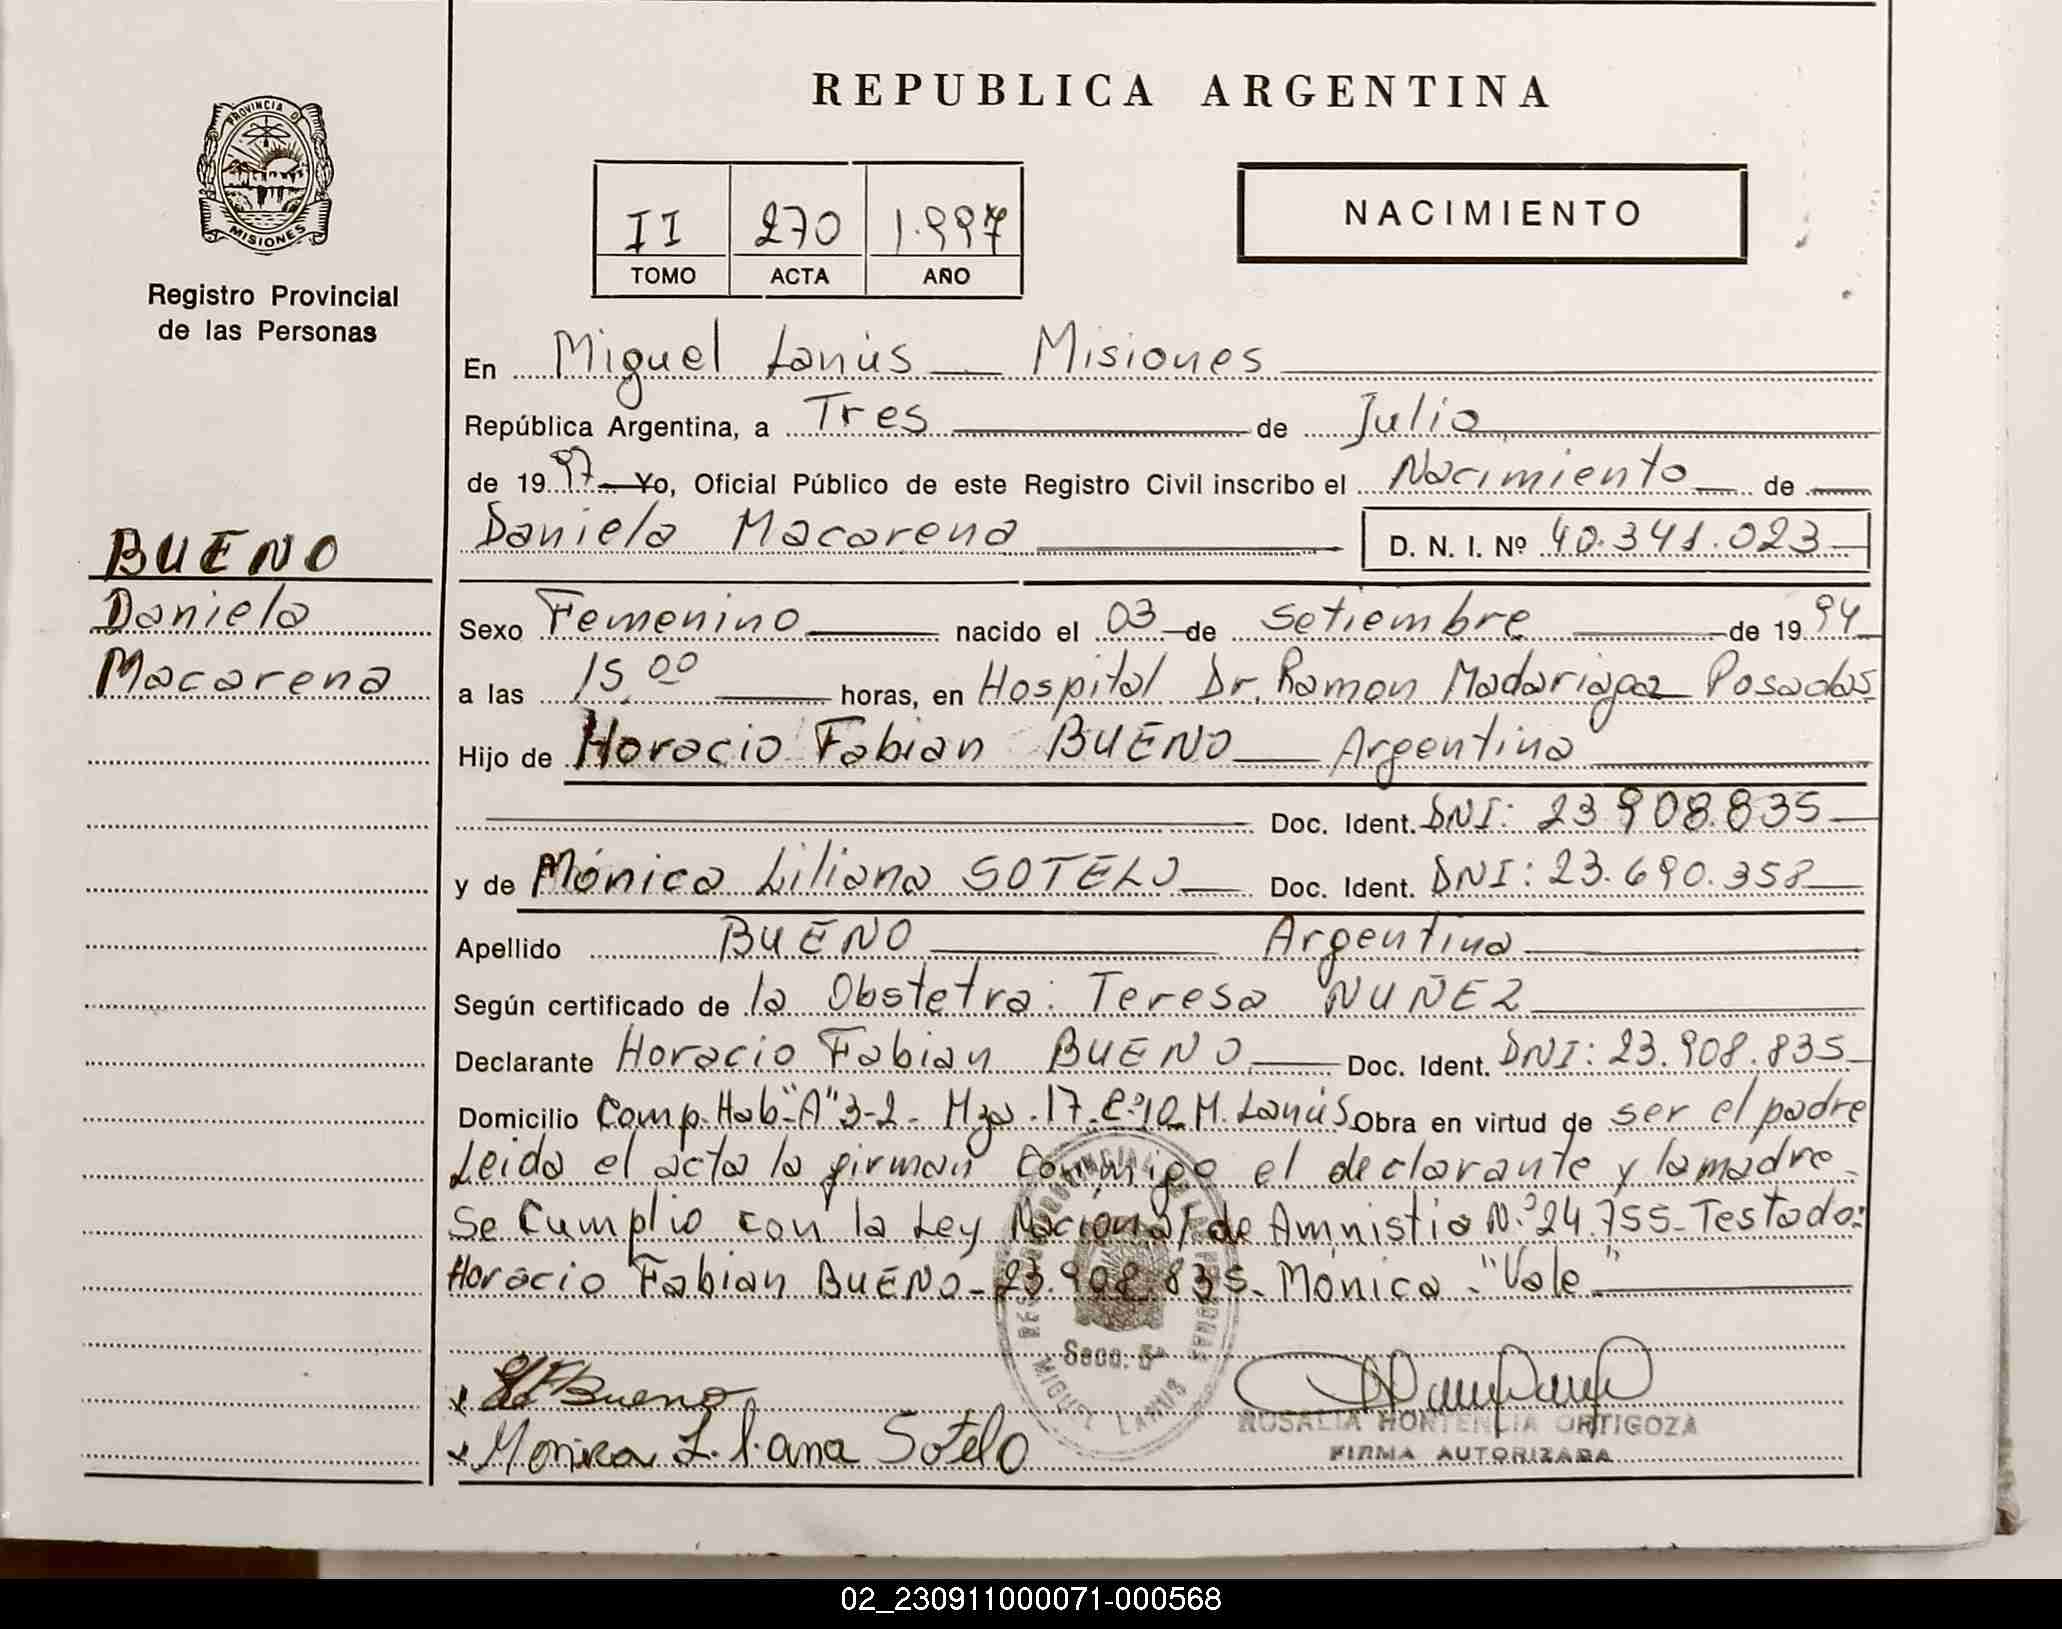 REPUBLICA ARGENTINA
PROVINCIA DE
MISIONES
Registro Provincial
de las Personas
II 270 1.997
TOMO ACTA AÑO
NACIMIENTO
En Miguel Lanús Misiones
República Argentina, a Tres de Julio
de 1997 Yo, Oficial Público de este Registro Civil inscribo el Nacimiento de
Daniela Macarena D. N. I. Nº 40.341.023
BUENO
Daniela
Macarena
Sexo Femenino nacido el 03 de setiembre de 1994
a las 15,00 horas, en Hospital Dr. Ramon Madariaga Posadas
Hijo de Horacio Fabian BUENO Argentina
Doc. Ident. DNI: 23.908.835
y de Mónica Liliana SOTELO Doc. Ident. DNI: 23.690.358
Apellido BUENO Argentina
Según certificado de la Obstetra: Teresa NUÑEZ
Declarante Horacio Fabian BUENO Doc. Ident. DNI: 23.908.835
Domicilio Comp. Hab "A" 3-2- Mza. 17. C:10 M. Lanús Obra en virtud de ser el padre
Leida el acta la firman conmigo el declarante y la madre
Se Cumplio con la Ley Nacional de Amnistia N.º 24.755- Testado:
Horacio Fabian BUENO- 23.908.835- Monica- "Vale"
Secc. 5ª
MIGUEL LANUS
Bueno
Monica Liliana Sotelo
ROSALIA HORTENCIA ORTIGOZA
FIRMA AUTORIZADA
02_230911000071-000568